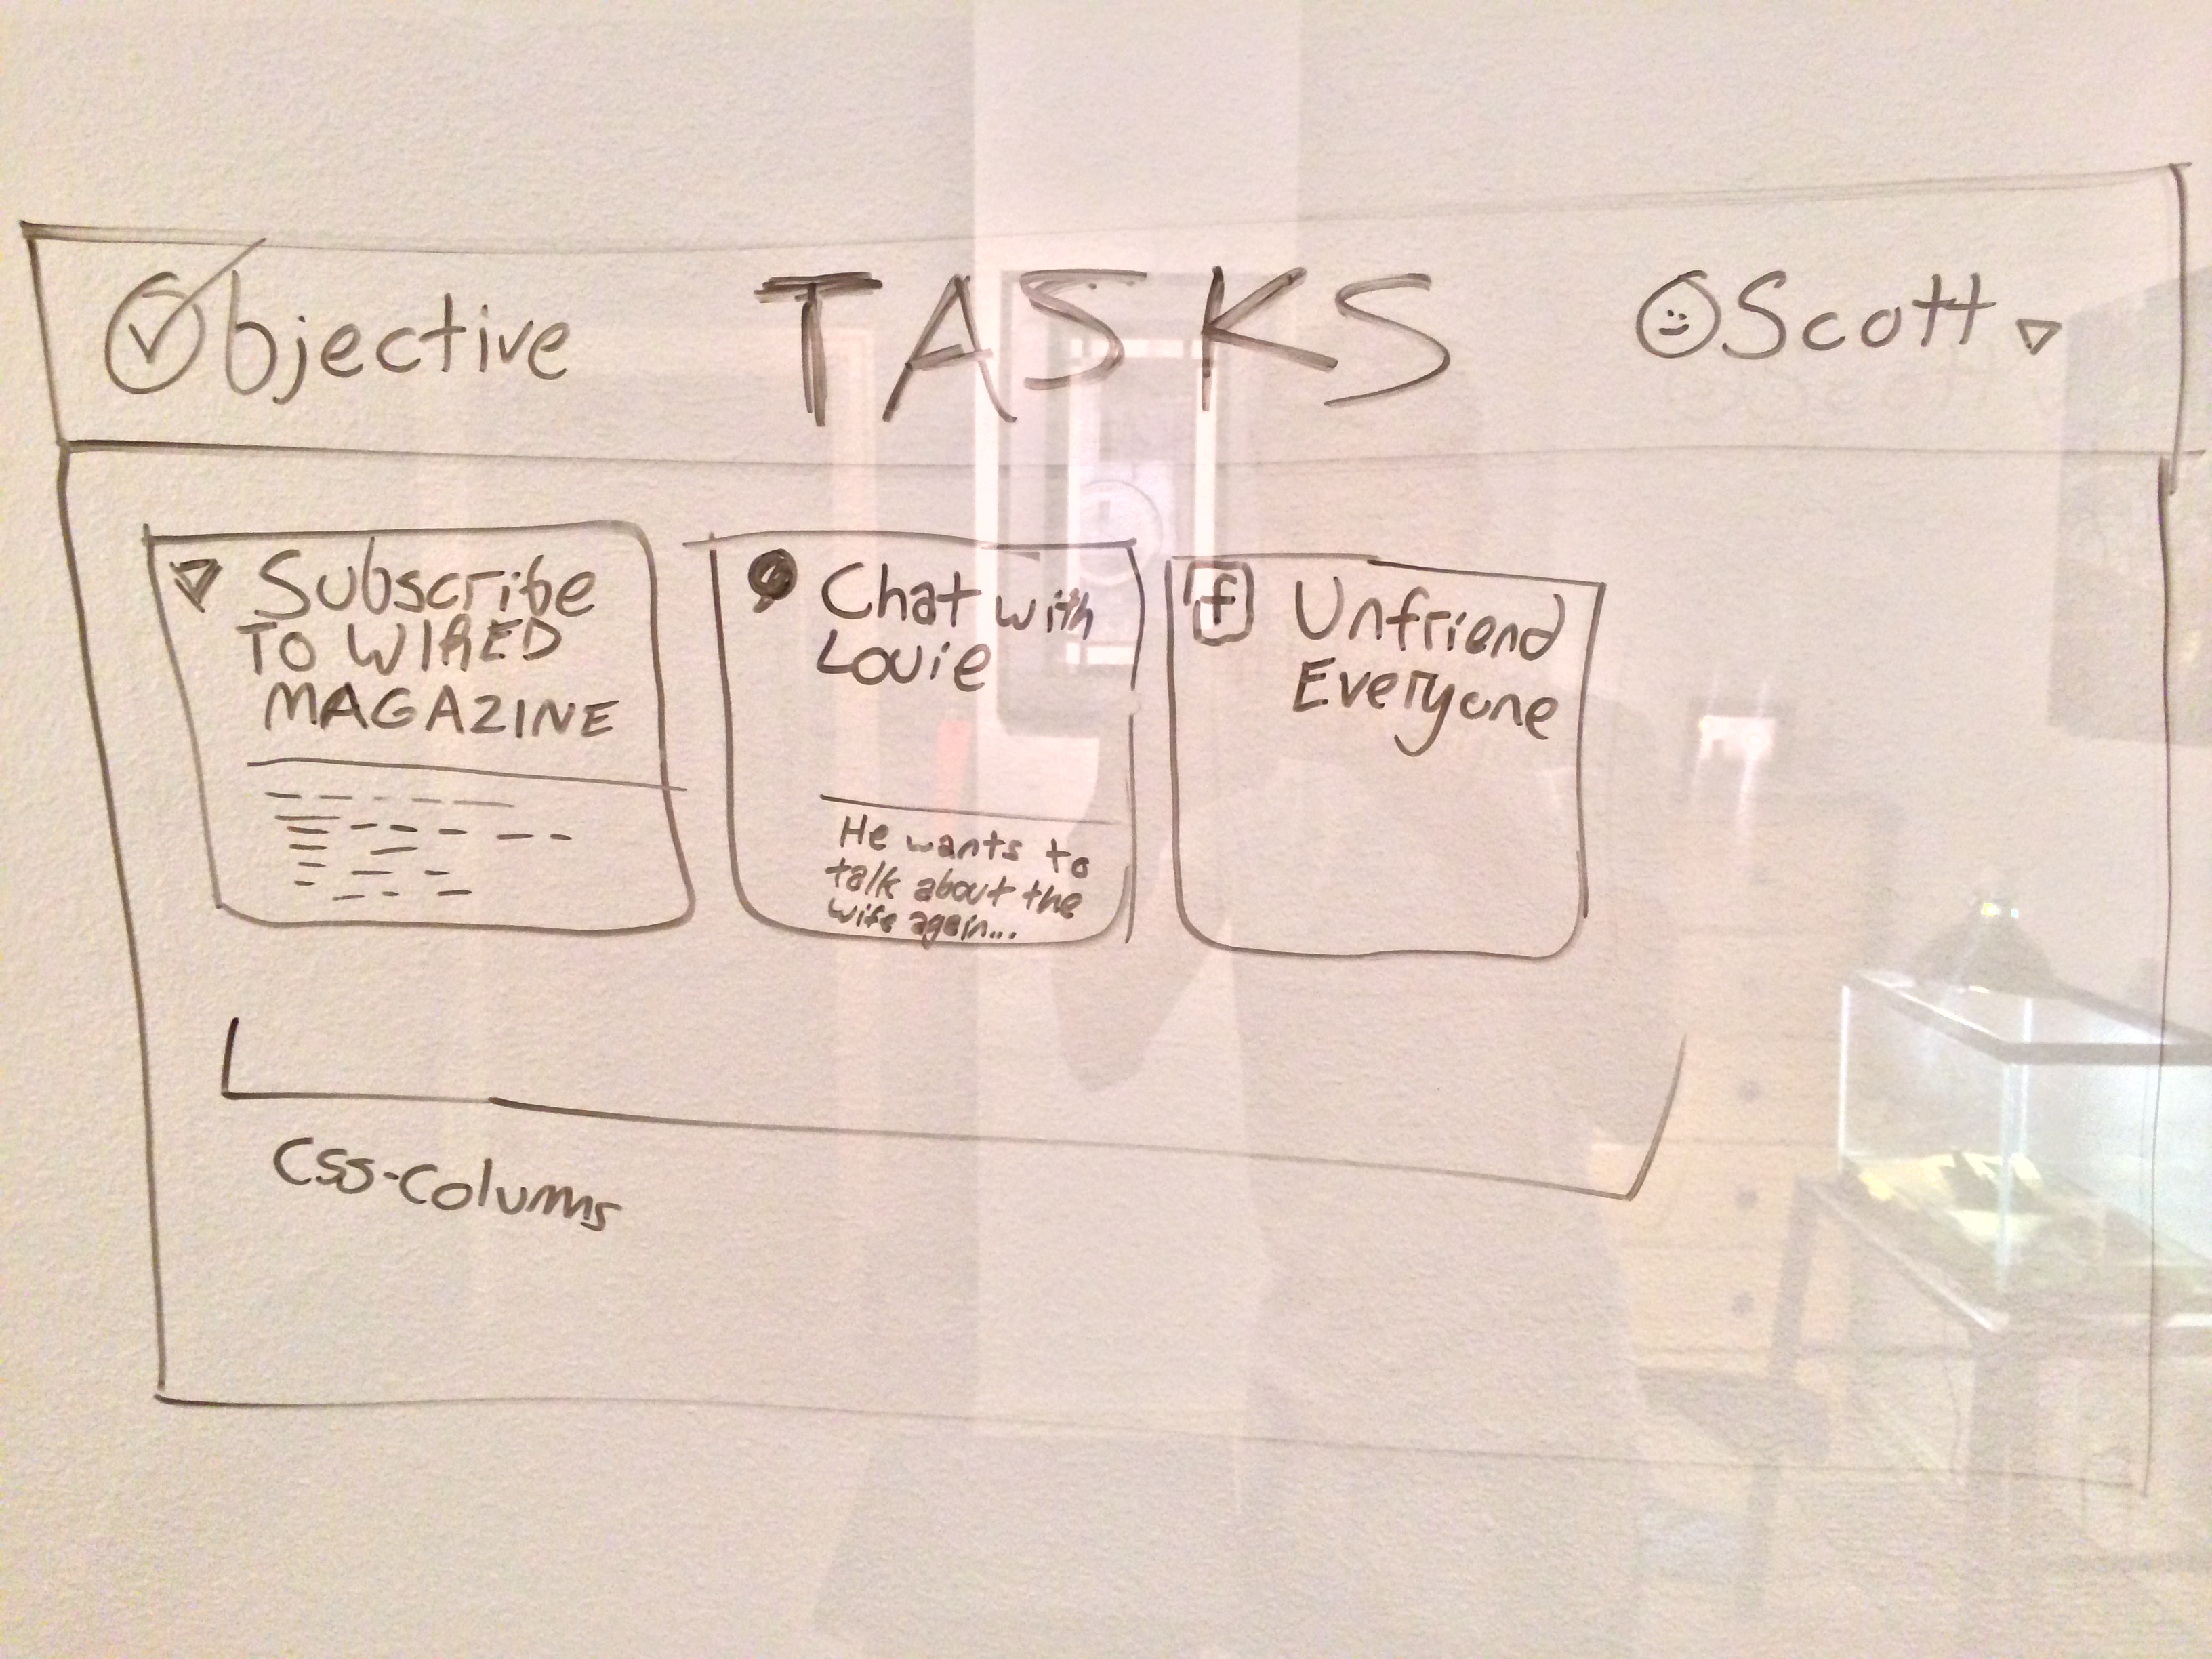 Objective
TASKS
Scott
Subscribe
TO WIRED
MAGAZINE
Chat with
Louie
He wants to
talk about the
wife again...
f
Unfriend
Everyone
Css-Columns